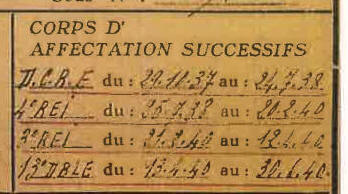 CORPS D'
AFFECTATION SUCCESSIFS
D.C.R.E du : 29.10.37 au : 24.7.38
4°REI du : 25.7.38 au : 20.2.40
3°REI du : 21.2.40 au : 12.4.40
13°DBLE du : 13.4.40 au : 30.6.40